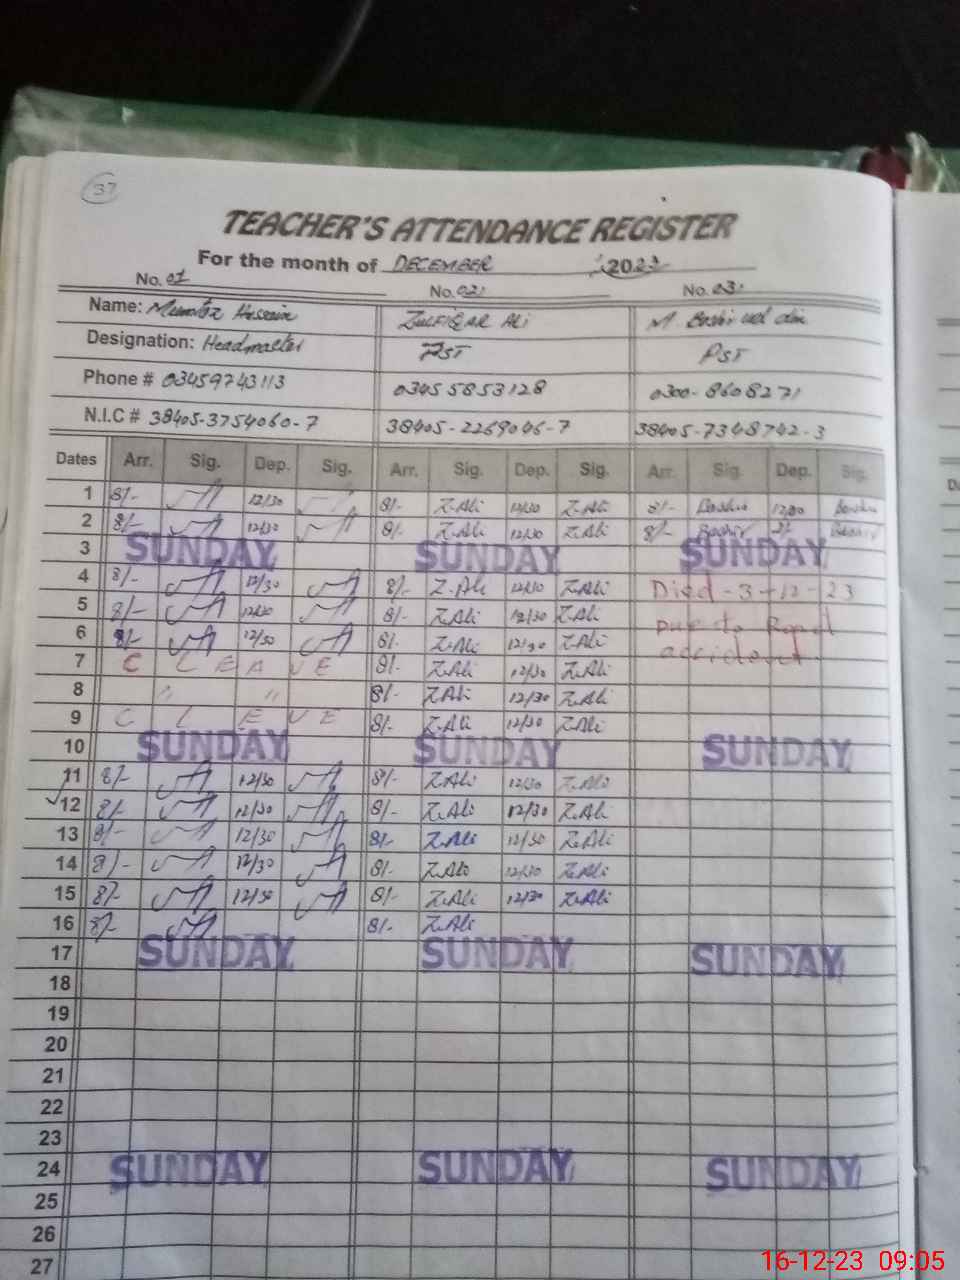 37
TEACHER'S ATTENDANCE REGISTER
For the month of DECEMBER 2023
No. 01 No. 02 No. 03
Name: Mumtaz Hussain ZULFIQAR Ali M. Bashir ud din
Designation: Headmaster PST PST
Phone # 03459743113 0345 5853128 0300-8608271
N.I.C # 38405-3754060-7 38405-2269046-7 38405-7348742-3
Dates Arr. Sig. Dep. Sig. Arr. Sig. Dep. Sig. Arr. Sig. Dep. Sig.
1 8/- 12/30 8/- Z.Ali 12/30 Z.Ali 8/- Bashir Bashir
2 8/- 12/30 8/- Z.Ali 12/30 Z.Ali 8/- Bashir Bashir
3 SUNDAY SUNDAY SUNDAY
4 8/- 12/30 8/- Z.Ali 12/30 Z.Ali Died-3-12-23
5 8/- 12/30 8/- Z.Ali 12/30 Z.Ali Due to Road
6 8/- 12/30 8/- Z.Ali 12/30 Z.Ali accident
7 C LEAVE 8/- Z.Ali 12/30 Z.Ali
8 " " 8/- Z.Ali 12/30 Z.Ali
9 C L E V E 8/- Z.Ali 12/30 Z.Ali
10 SUNDAY SUNDAY SUNDAY
11 8/- 12/30 8/- Z.Ali 12/30 Z.Ali
12 8/- 12/30 8/- Z.Ali 12/30 Z.Ali
13 8/- 12/30 8/- Z.Ali 12/30 Z.Ali
14 8/- 12/30 8/- Z.Ali 12/30 Z.Ali
15 8/- 12/30 8/- Z.Ali 12/30 Z.Ali
16 8/- 8/- Z.Ali
17 SUNDAY SUNDAY SUNDAY
18
19
20
21
22
23
24 SUNDAY SUNDAY SUNDAY
25
26
27
16-12-23 09:05